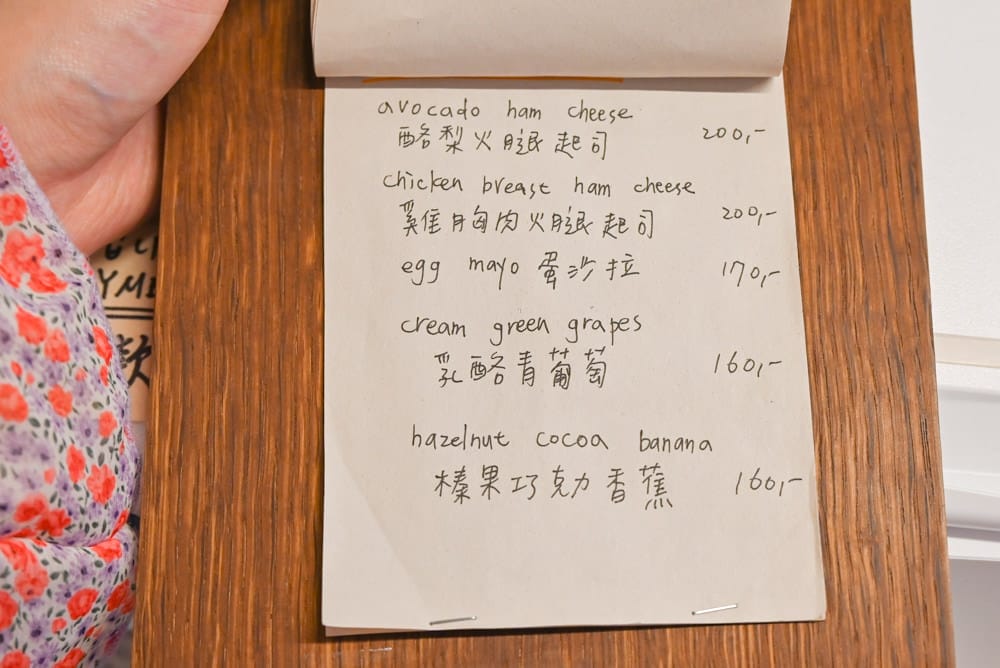 avocado ham cheese
酪梨火腿起司 200,-
chicken breast ham cheese
雞胸肉火腿起司 200,-
egg mayo 蛋沙拉 170,-
cream green grapes
乳酪青葡萄 160,-
hazelnut cocoa banana
榛果巧克力香蕉 160,-